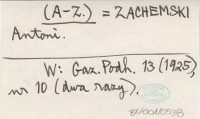 (A-Z.) = ZACHEMSKI
Antoni.
W: Gaz. Podh. 13 (1925),
nr 10 (dwa razy).